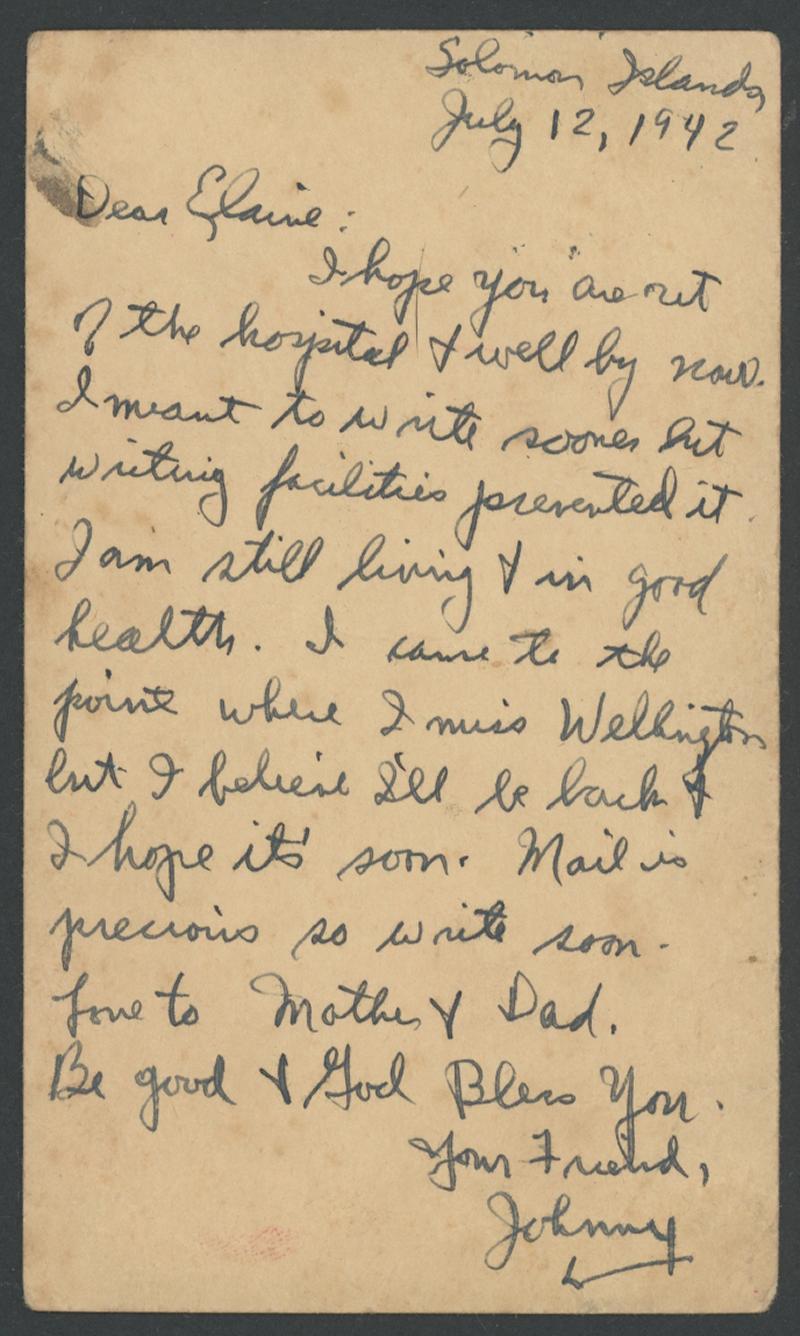 Solomon Islands
July 12, 1942
Dear Elaine:
I hope you are out
of the hospital & well by now.
I meant to write sooner but
writing facilities prevented it
I am still living & in good
health. I came to the
point where I miss Wellington
but I believe I'll be back &
I hope it's soon. Mail is
precious so write soon.
Love to Mother & Dad.
Be good & God Bless You.
Your Friend,
Johnny